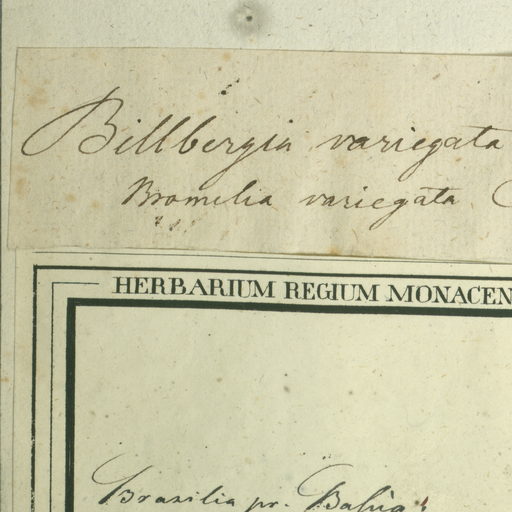 Billbergia variegata
Bromelia variegata
HERBARIUM REGIUM MONACEN
Brasilia pr. Bahia